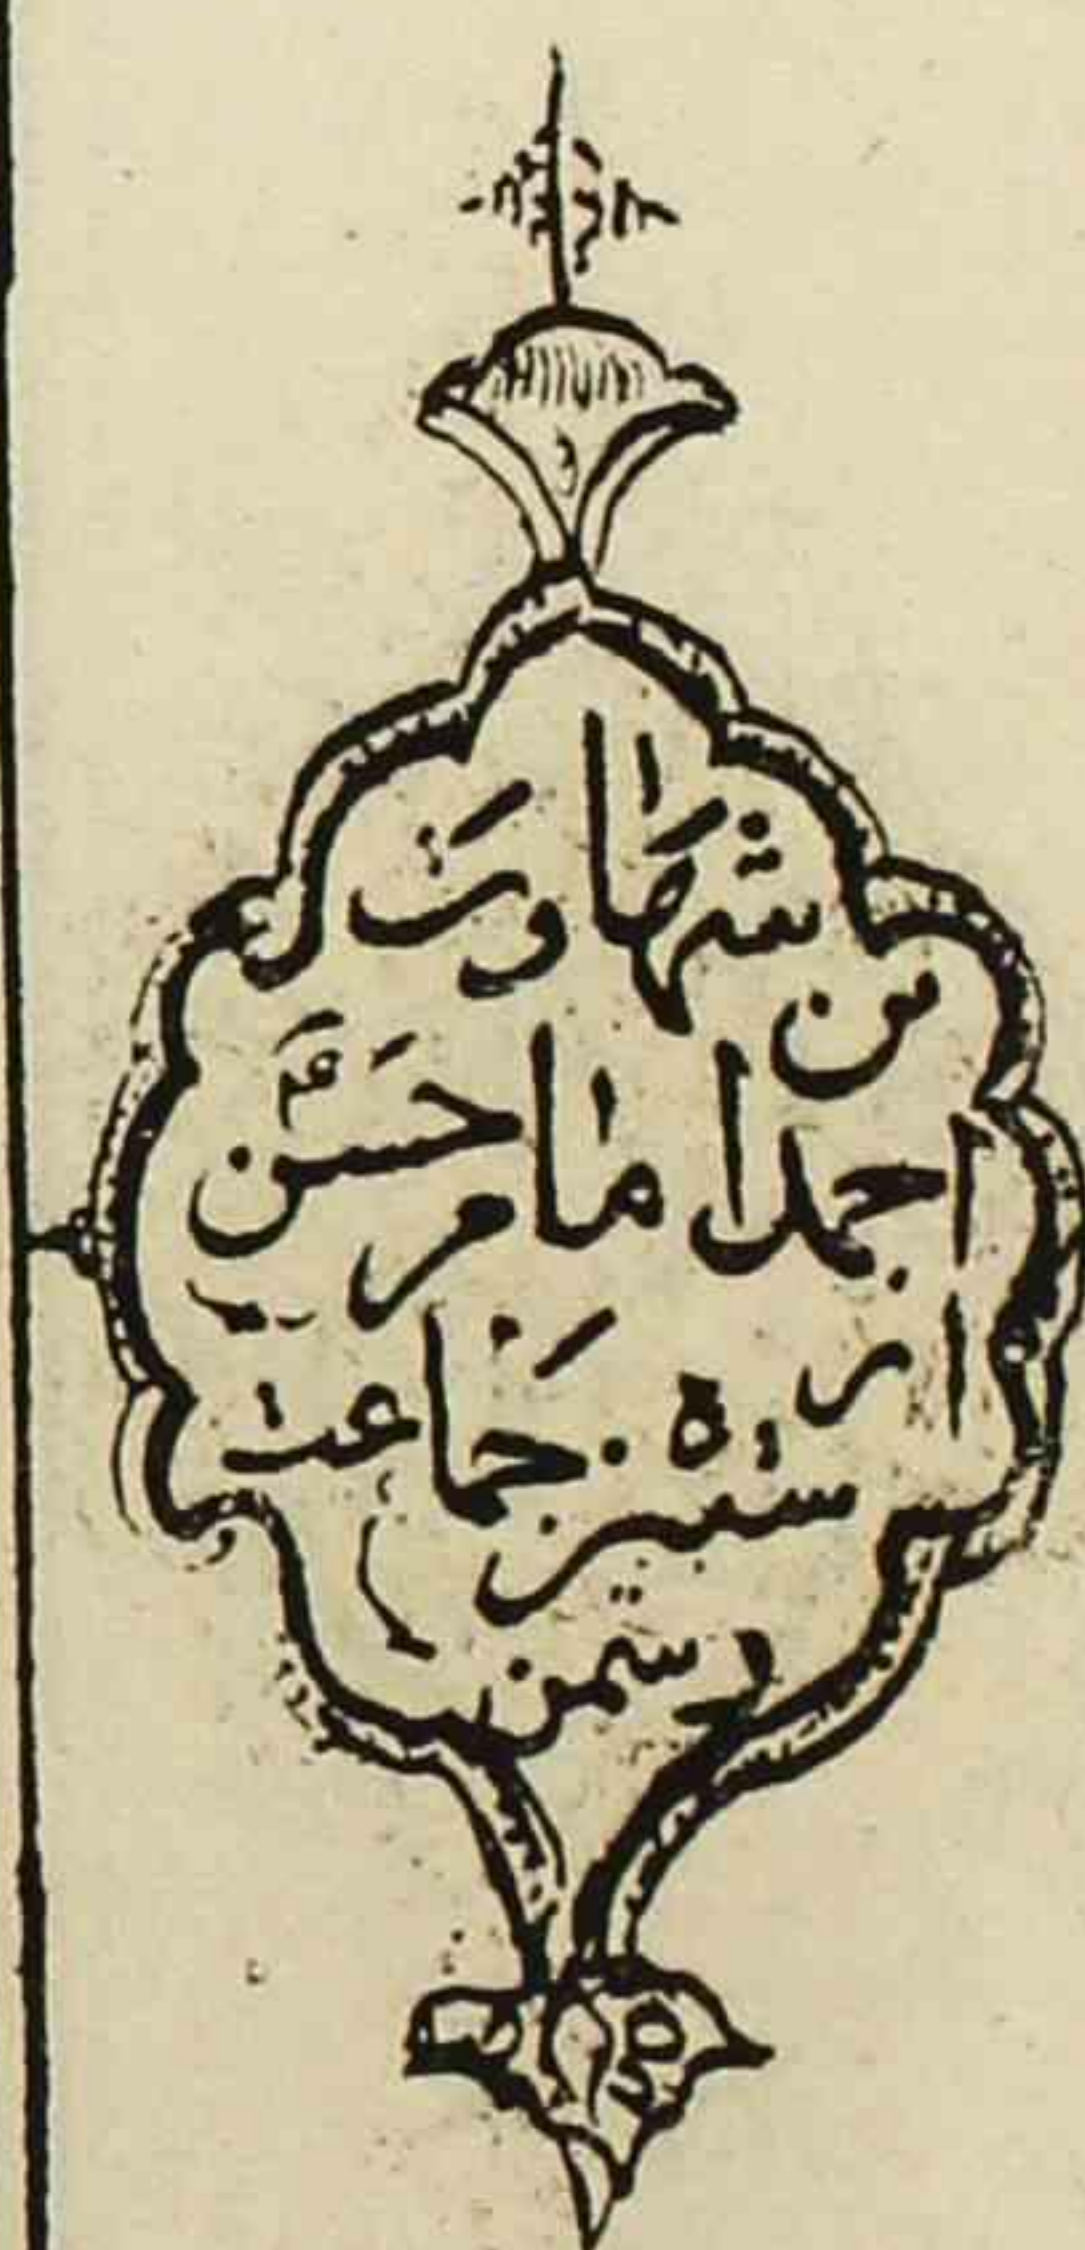 شهادت
من
اجدا امام حسن ع
از ده جماعت
سبز
دشمن